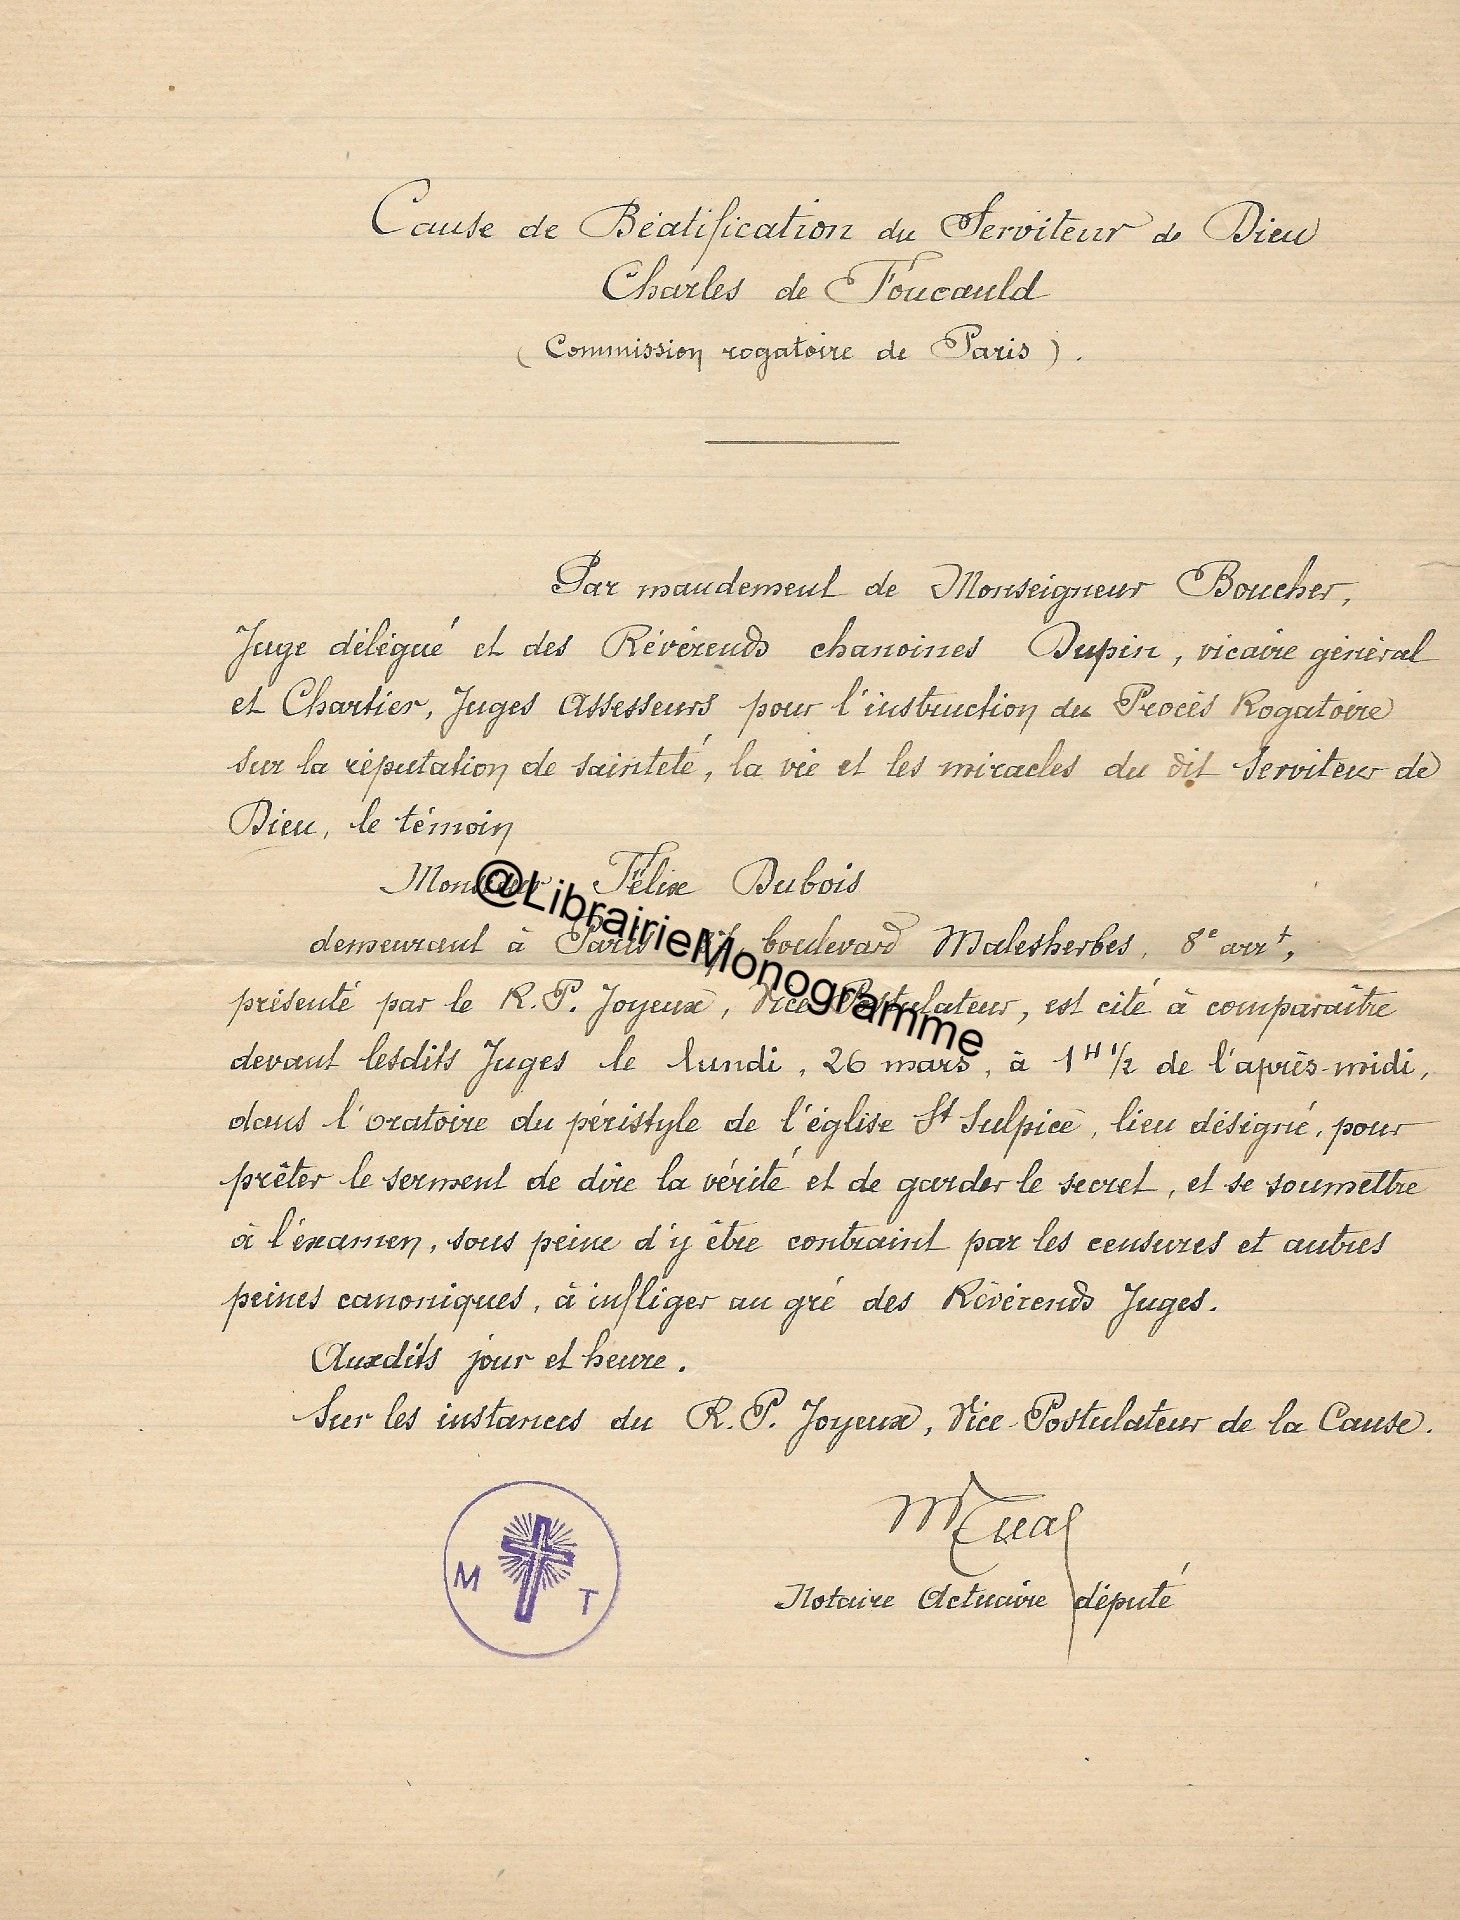 Cause de Béatification du Serviteur de Dieu
Charles de Foucauld
(Commission rogatoire de Paris).
Par mandement de Monseigneur Boucher,
Juge délégué et des Révérends chanoines Dupin, vicaire général
et Chartier, Juges Assesseurs pour l'instruction du Procès Rogatoire
sur la réputation de sainteté, la vie et les miracles du dit Serviteur de
Dieu, le témoin
Monsieur Félix Dubois
demeurant à Paris boulevard Malesherbes, 8e arrt,
@LibrairieMonogramme
présenté par le R.P. Joyeux, Vice Postulateur, est cité à comparaître
devant lesdits Juges le lundi, 26 mars, à 1H 1/2 de l'après-midi,
dans l'oratoire du péristyle de l'église St Sulpice, lieu désigné, pour
prêter le serment de dire la vérité et de garder le secret, et se soumettre
à l'éxamen, sous peine d'y être contraint par les censures et autres
peines canoniques, à infliger au gré des Révérends Juges.
Auxdits jour et heure.
Sur les instances du R.P. Joyeux, Vice-Postulateur de la Cause.
M T
Notaire Actuaire député